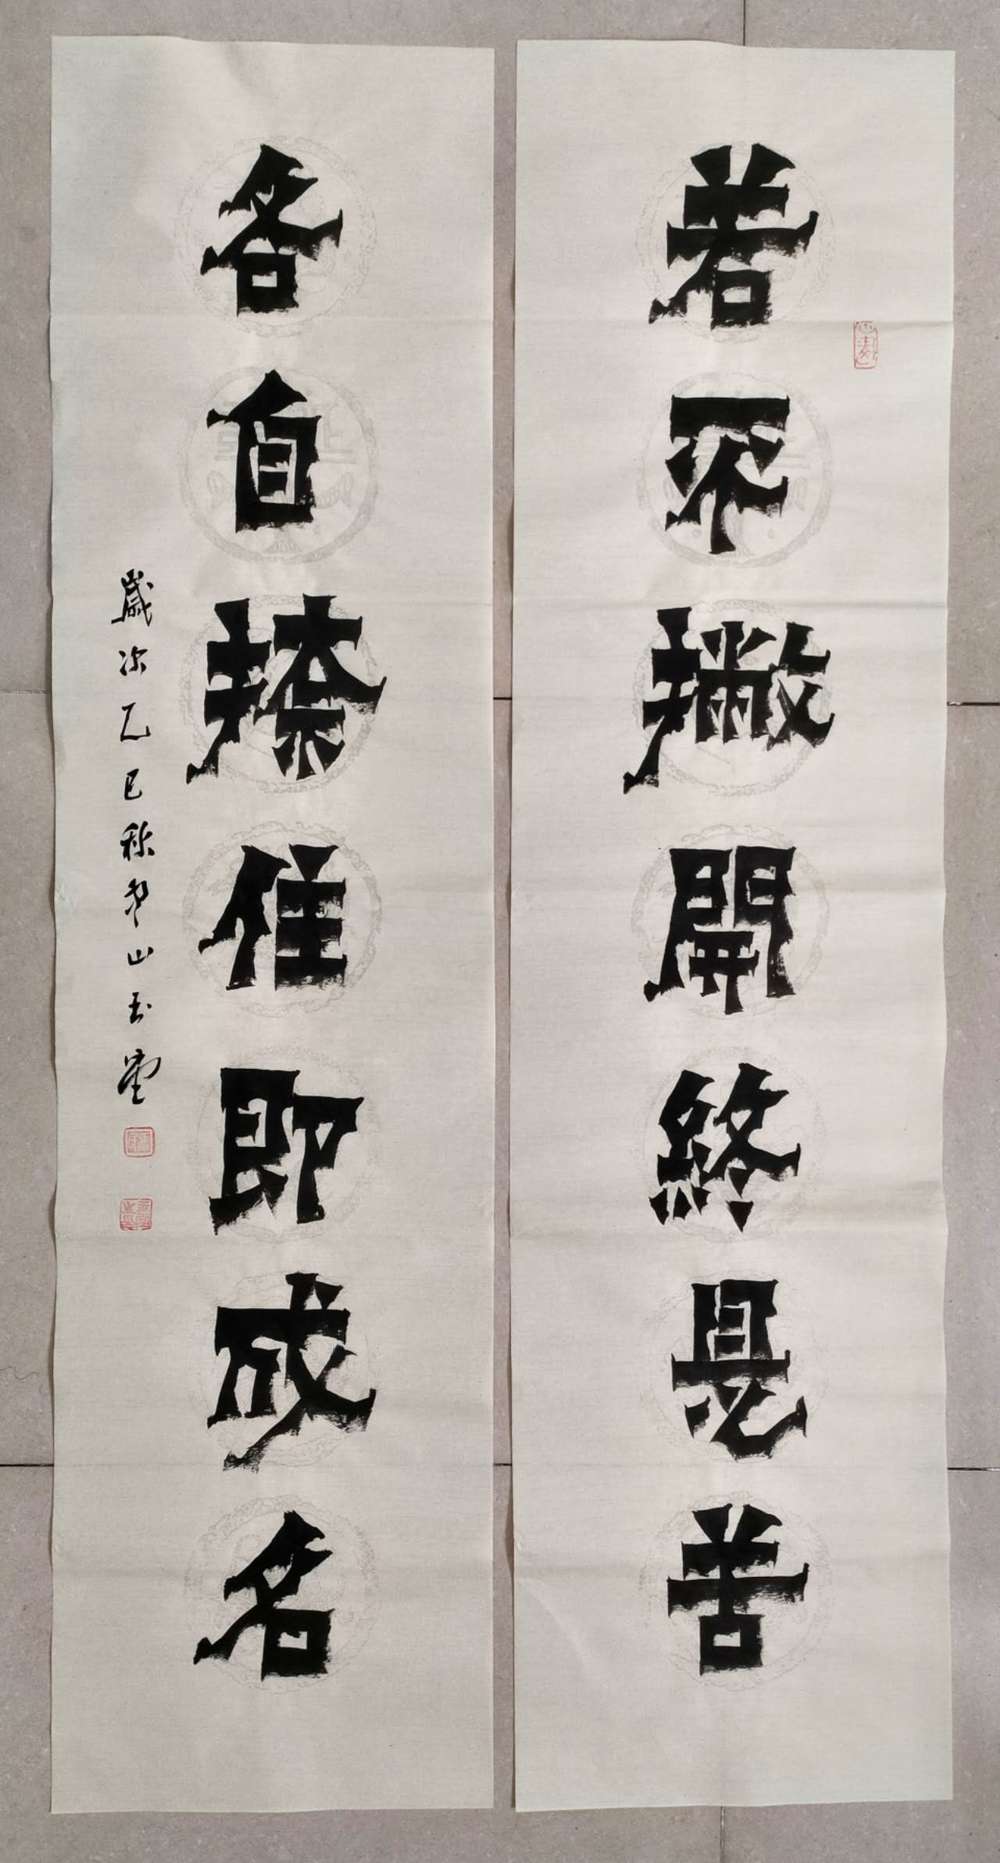 若不撇開終是苦
各自捺住即成名
歲次乙巳秋尹山玉堂